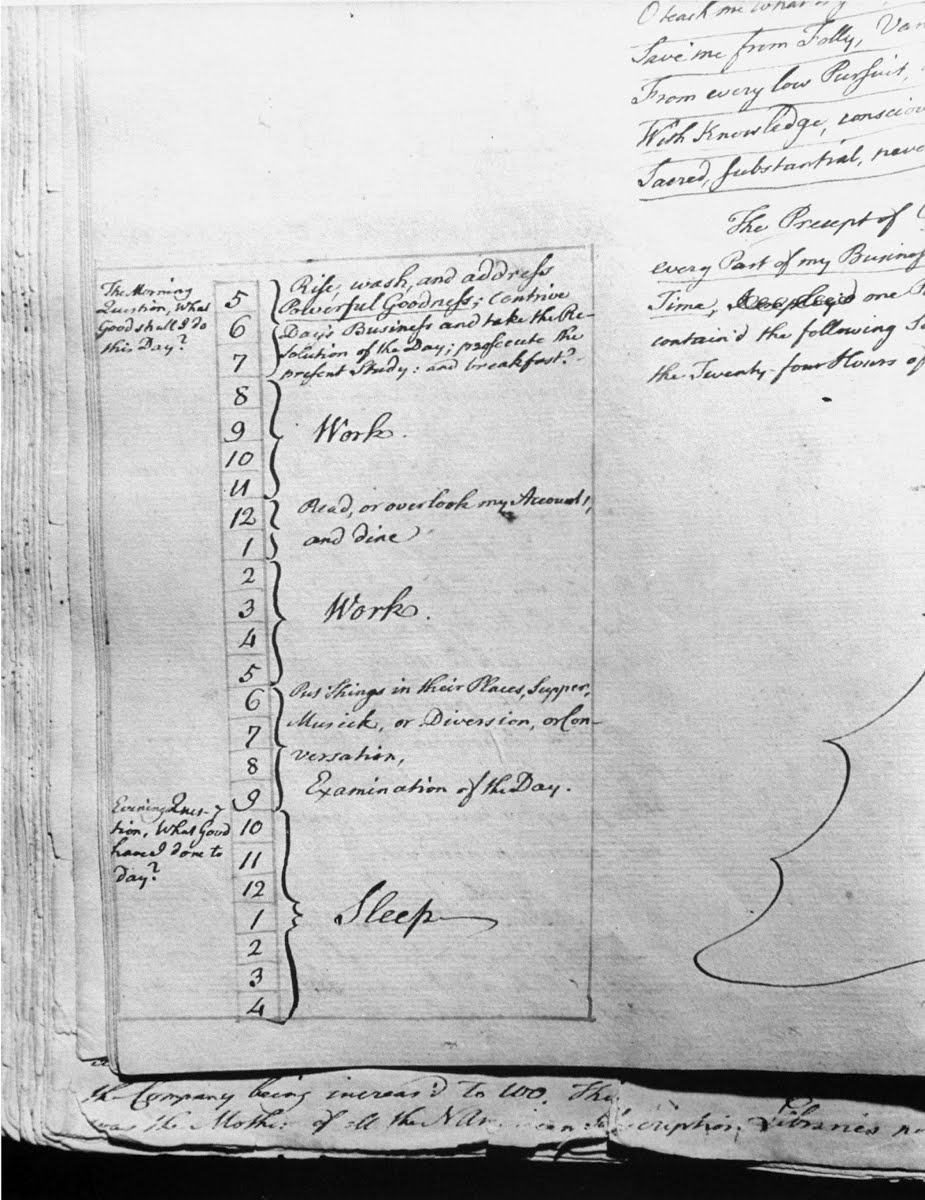 O teach me what
Save me from Folly,
From every low Pursuit,
With Knowledge,
Sacred, substantial,
The Precept of
every Part of my
Time, one
contain'd the following
the Twenty-four Hours of
The Morning
Question, What
Good shall I do
this Day?
5
6
7
Rise, wash, and address
Powerful Goodness; contrive
Day's Business and take the Re-
solution of the Day; prosecute the
present Study: and breakfast?-
8
9
10
11
Work.
12
1
Read, or overlook my Accounts,
and dine
2
3
4
5
Work.
6
7
8
9
Put Things in their Places, Supper,
Musick, or Diversion, or Con-
versation,
Examination of the Day.
Evening Ques-
tion, What Good
have I done to
day?
10
11
12
1
2
3
4
Sleep
the Company being increas'd to 100. This
was the Mother of all the Libraries